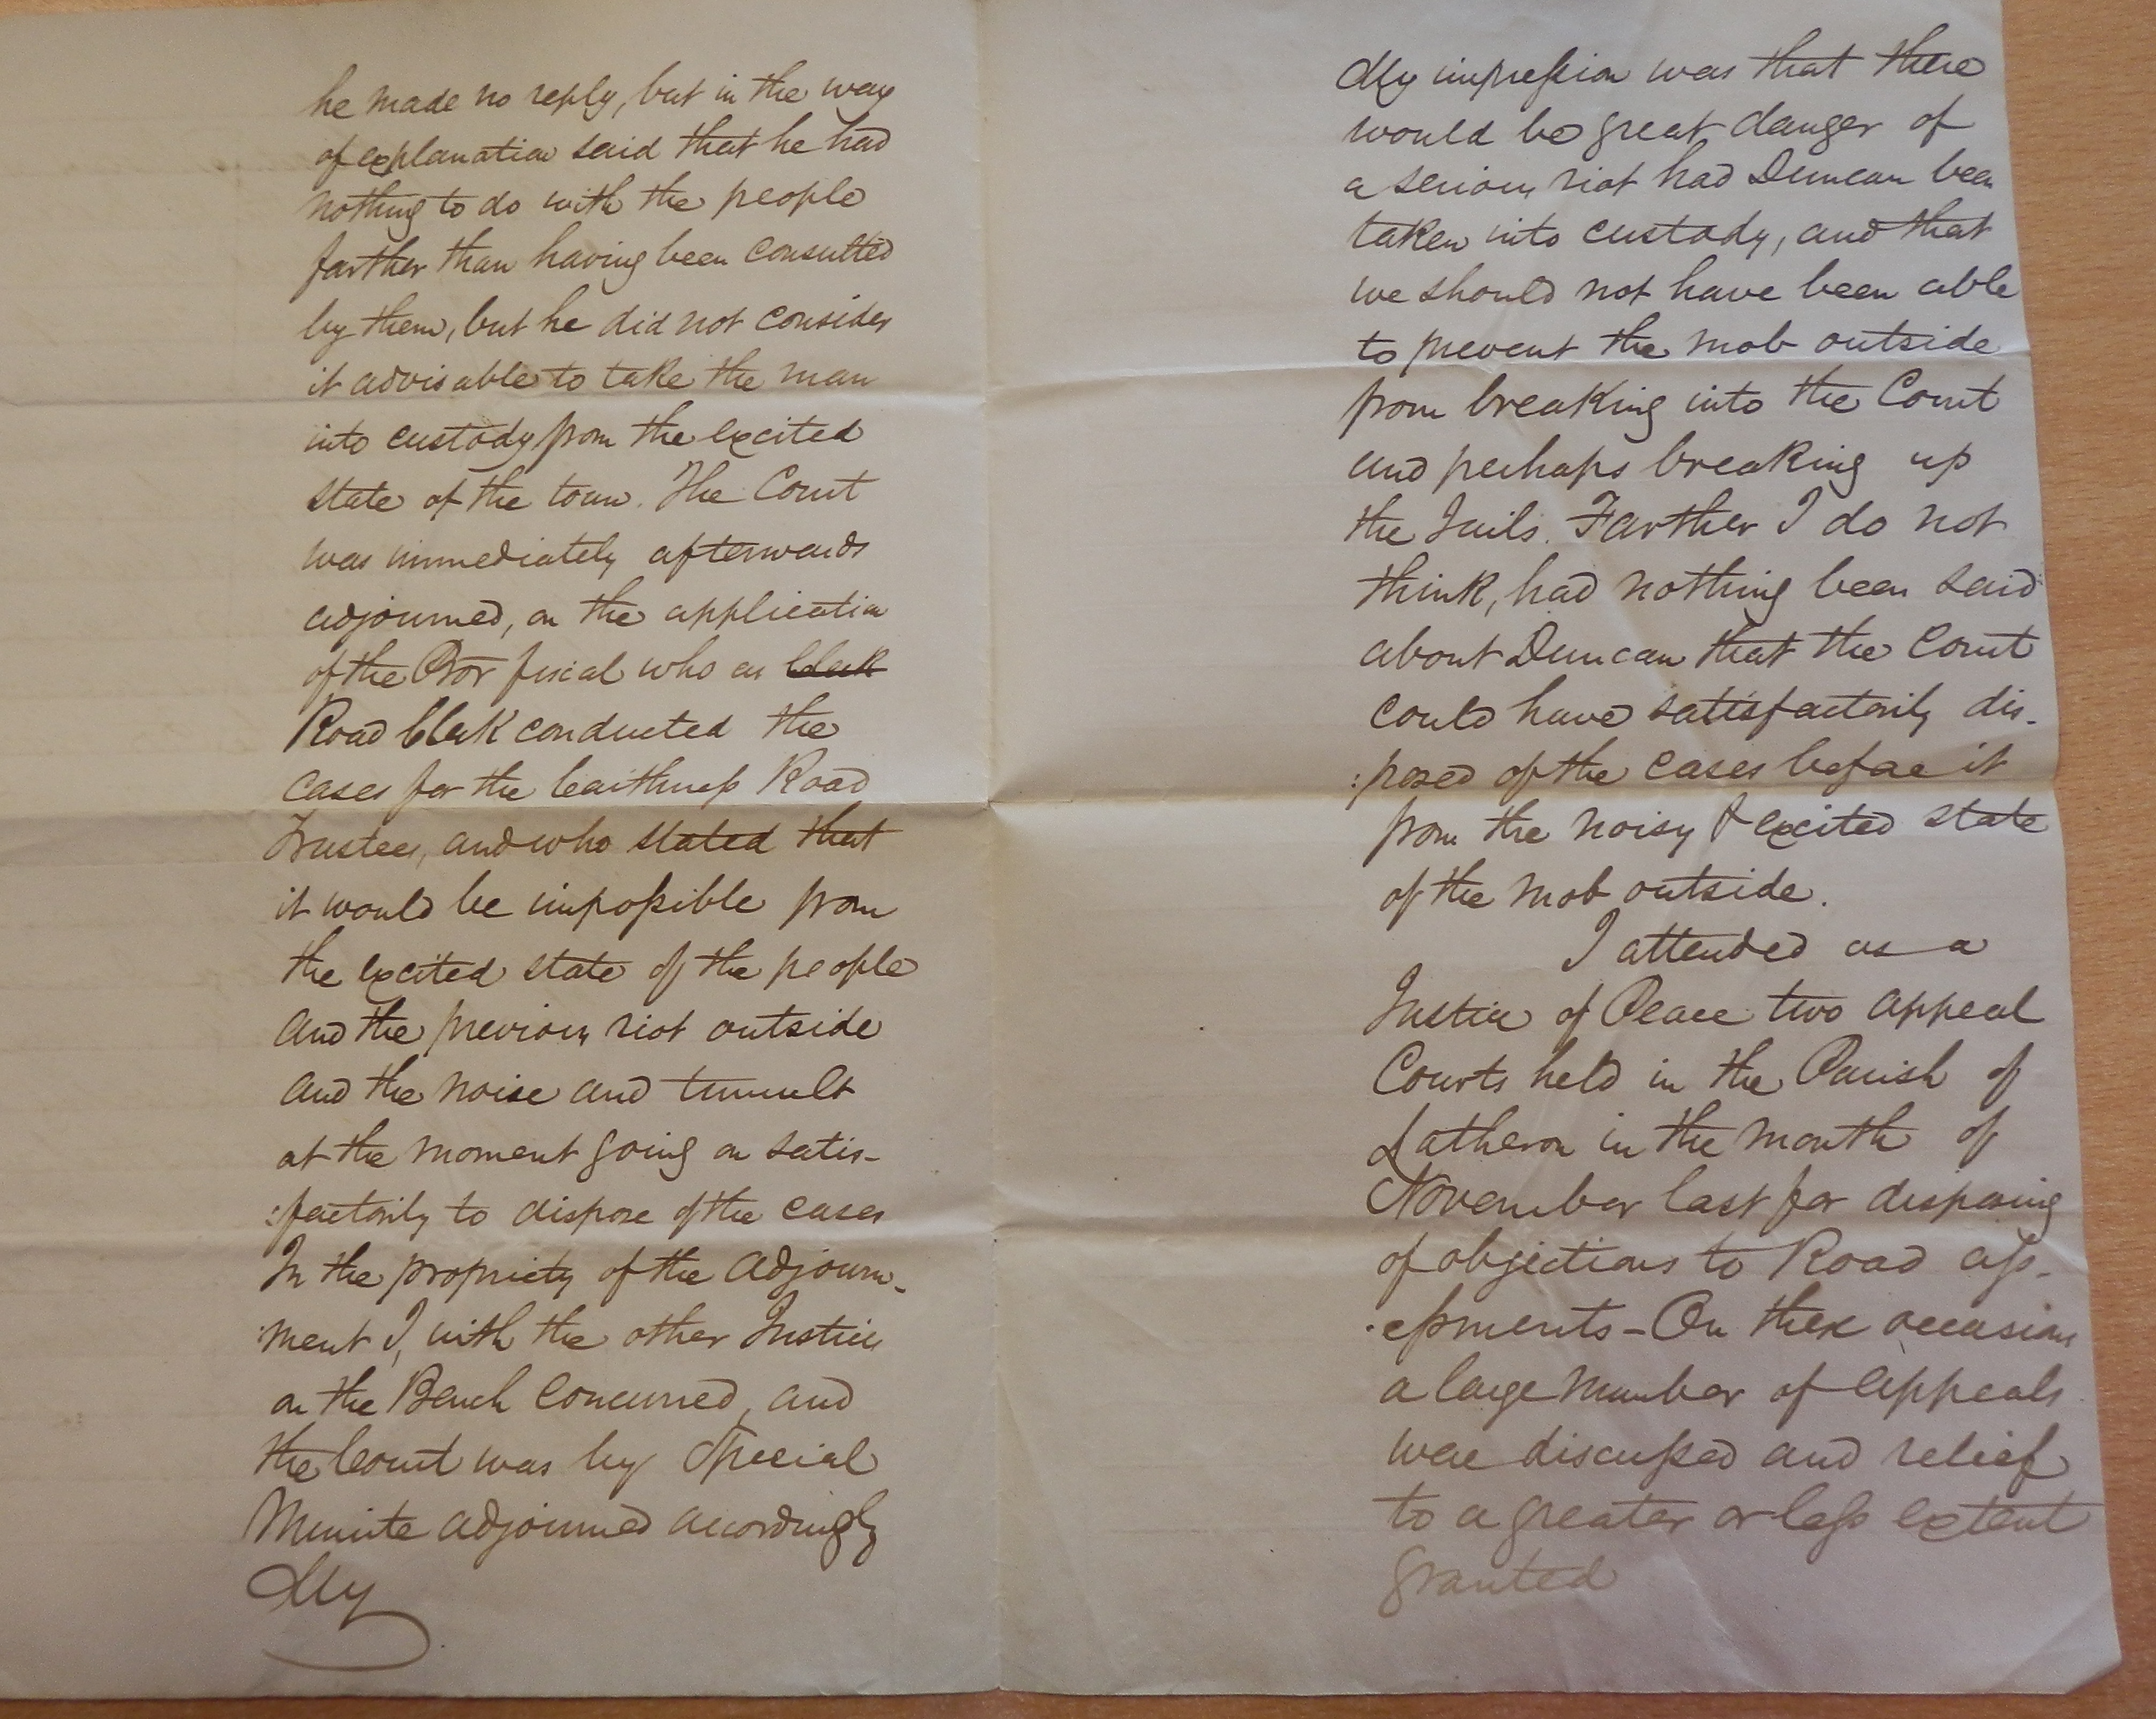 he made no reply, but in the way
of explanation said that he had
nothing to do with the people
farther than having been consulted
by them, but he did not consider
it advisable to take the man
into custody from the excited
state of the town. The Court
was immediately afterwards
adjourned, on the application
of the Pror fiscal who as Clerk
Road Clerk conducted the
cases for the Caithness Road
Trustees, and who stated that
it would be impossible from
the excited state of the people
and the previous riot outside
and the noise and tumult
at the moment going on satis-
:factorily to dispose of the cases
In the propriety of the adjourn-
:ment I, with the other Justices
on the Bench concurred, and
the Court was by Special
Minute adjourned accordingly
My
My impression was that there
would be great danger of
a serious riot had Duncan been
taken into custody, and that
we should not have been able
to prevent the mob outside
from breaking into the Court
and perhaps breaking up
the Jails. Farther I do not
think, had nothing been said
about Duncan that the Court
could have satisfactorily dis-
:posed of the cases before it
from the noisy & excited state
of the mob outside.
I attended as a
Justice of Peace two appeal
Courts held in the Parish of
Latheron in the month of
November last for disposing
of objections to Road ass-
:essments - On these occasions
a large number of appeals
were discussed and relief
to a greater or less extent
granted